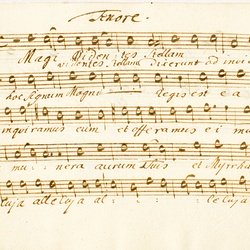 Tenore.
Magi Viden tes stellam
videntes stellam dixerunt ad invi
hoc signum Magni Regis est e a
inquiramus eum et offeramus e i mu
mu - nera aurum Thus et Myrrha
luja alleluja al - leluja